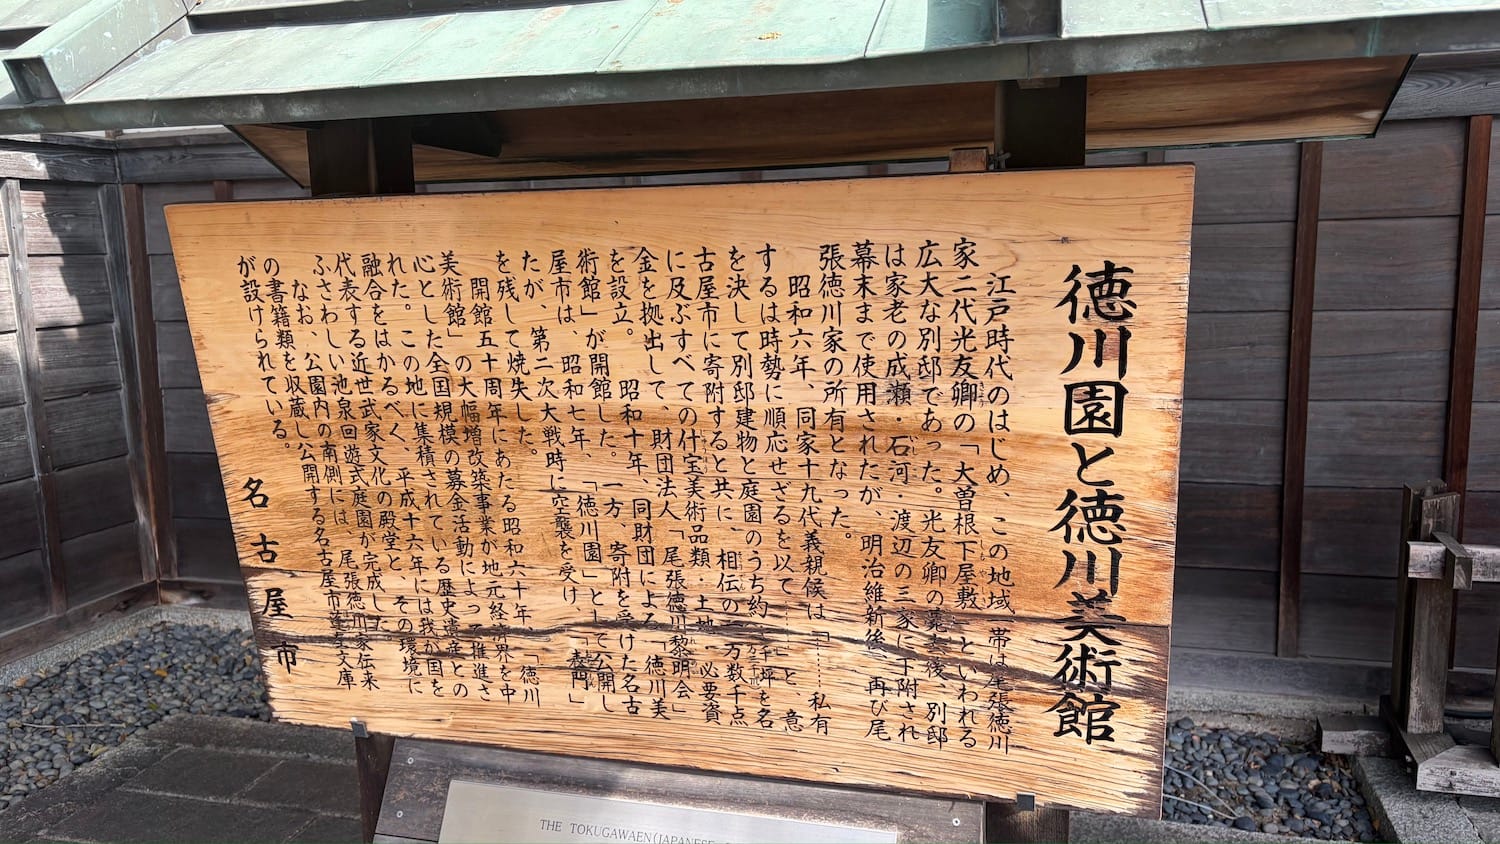 徳川園と徳川美術館
江戸時代のはじめ、この地域一帯は尾張徳川
家二代光友卿の「大曽根下屋敷」といわれる
広大な別邸であった。光友卿の薨去後、別邸
は家老の成瀬・石河・渡辺の三家に下附され
幕末まで使用されたが、明治維新後、再び尾
張徳川家の所有となった。
昭和六年、同家十九代義親候は「……私有
するは時勢に順応せざるを以て……」と、意
を決して別邸建物と庭園のうち約 千坪を名
古屋市に寄附すると共に、相伝の一万数千点
に及ぶすべての什宝美術品類・土地・必要資
金を拠出して、財団法人「尾張徳川黎明会」
を設立。昭和十年、同財団による「徳川美
術館」が開館した。一方、寄附を受けた名古
屋市は、昭和七年、「徳川園」として公開し
たが、第二次大戦時に空襲を受け、「表門」
を残して焼失した。
開館五十周年にあたる昭和六十年、「徳川
美術館」の大幅増改築事業が地元経済界を中
心とした全国規模の募金活動によって推進さ
れた。この地に集積されている歴史遺産との
融合をはかるべく、平成十六年には我が国を
代表する近世武家文化の殿堂と、その環境に
ふさわしい池泉回遊式庭園が完成した。
なお、公園内の南側には、尾張徳川家伝来
の書籍類を収蔵し公開する名古屋市蓬左文庫
が設けられている。
名古屋市
THE TOKUGAWAEN(JAPANESE